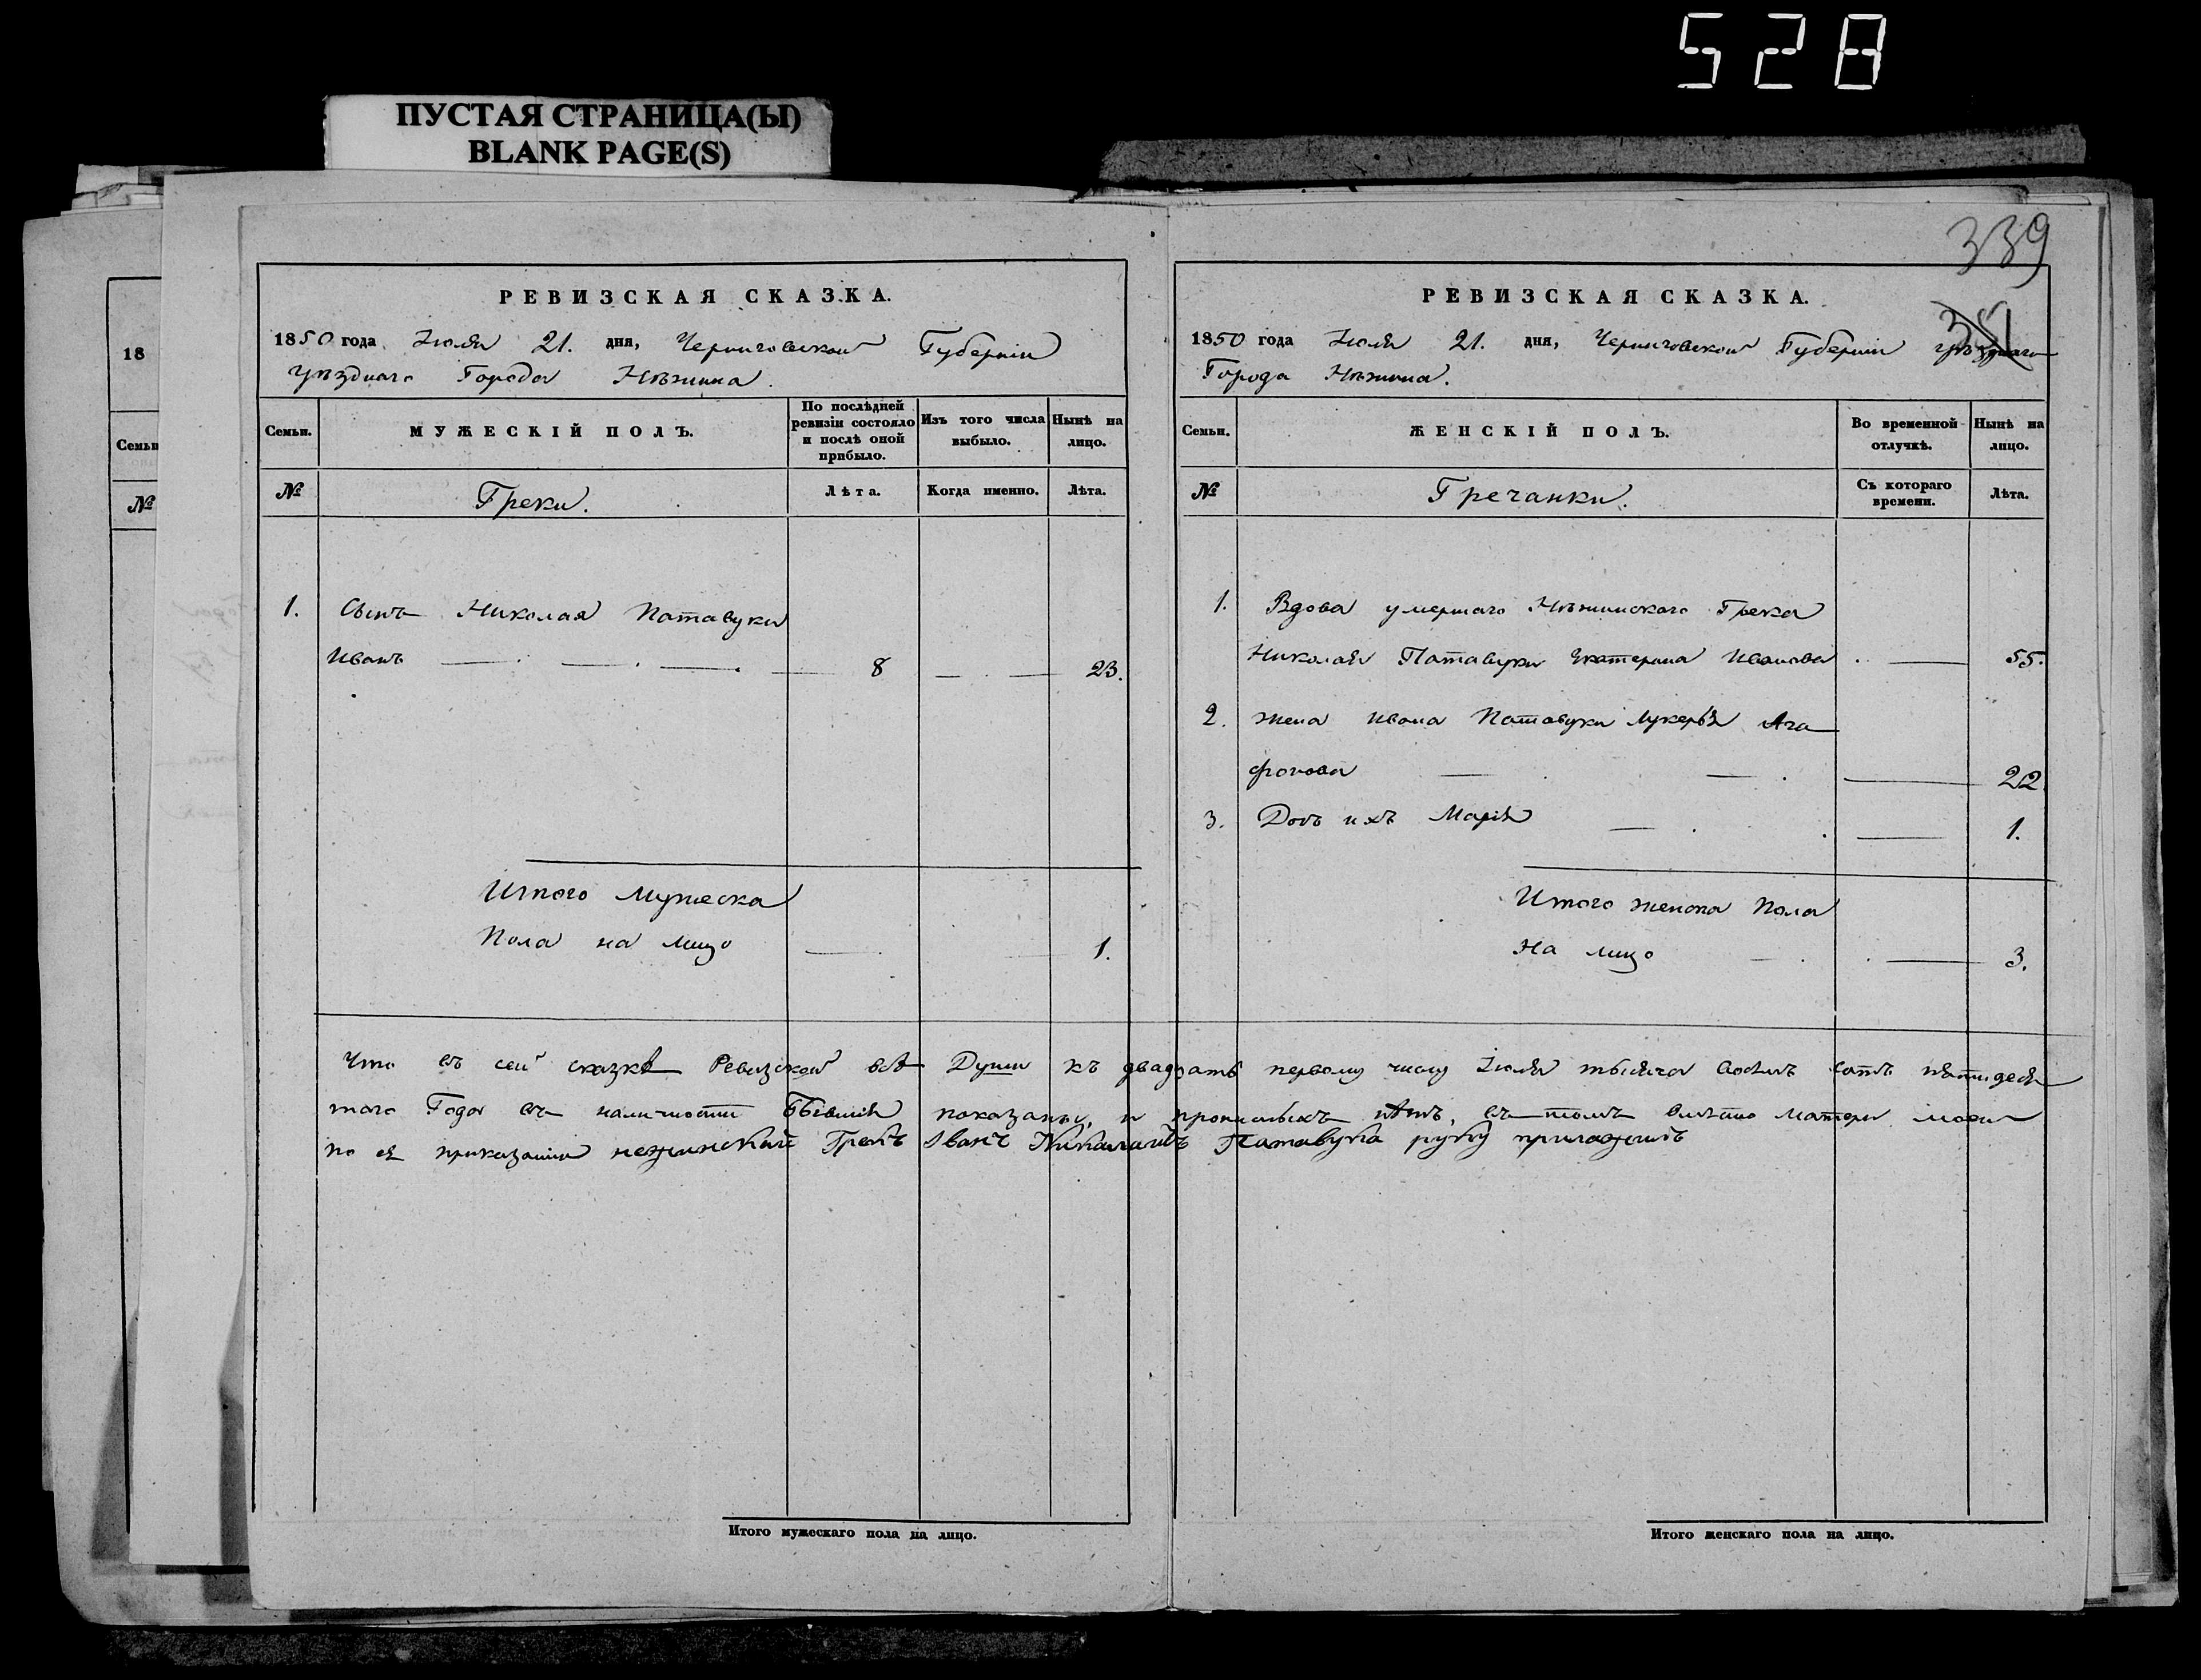 528
ПУСТАЯ СТРАНИЦА(Ы)
BLANK PAGE(S)
18
Семьи
№
РЕВИЗСКАЯ СКАЗКА.
1850 года Іюля 21. дня, Черниговской Губерніи
уѣзднаго Города Нѣжина.
Семьи.
МУЖЕСКІЙ ПОЛЪ.
По послѣдней ревизіи состояло и послѣ оной прибыло.
Изъ того числа выбыло.
Нынѣ на лицо.
№
Греки.
Лѣта.
Когда именно.
Лѣта.
1. Сынъ Николая Патавуки
Иванъ 8 23.
Итого мужеска
Пола на лицо 1.
339
РЕВИЗСКАЯ СКАЗКА.
1850 года Іюля 21. дня, Черниговской Губерніи уѣзднаго
Города Нѣжина.
Семьи.
ЖЕНСКІЙ ПОЛЪ.
Во временной отлучкѣ.
Нынѣ на лицо.
№
Гречанки.
Съ котораго времени.
Лѣта.
1. Вдова умершаго Нѣжинскаго Грека
Николая Патавуки Екатерина Иванова 55.
2. жена Ивана Патавуки Лукерья Ага
фонова 22.
3. Дочь ихъ Марія 1.
Итого женска Пола
На лицо 3.
Что въ сей сказкѣ Ревизской всѣ Души къ двадцать первому числу Іюля тысяча восемь сотъ пятидеся
таго Года въ наличности бывшія показаны, и прописныхъ нѣтъ, въ томъ вместо матери моей
по ея приказанію нежинский Грекъ Іванъ Николаивъ Патавука руку приложилъ
Итого мужескаго пола на лицо.
Итого женскаго пола на лицо.